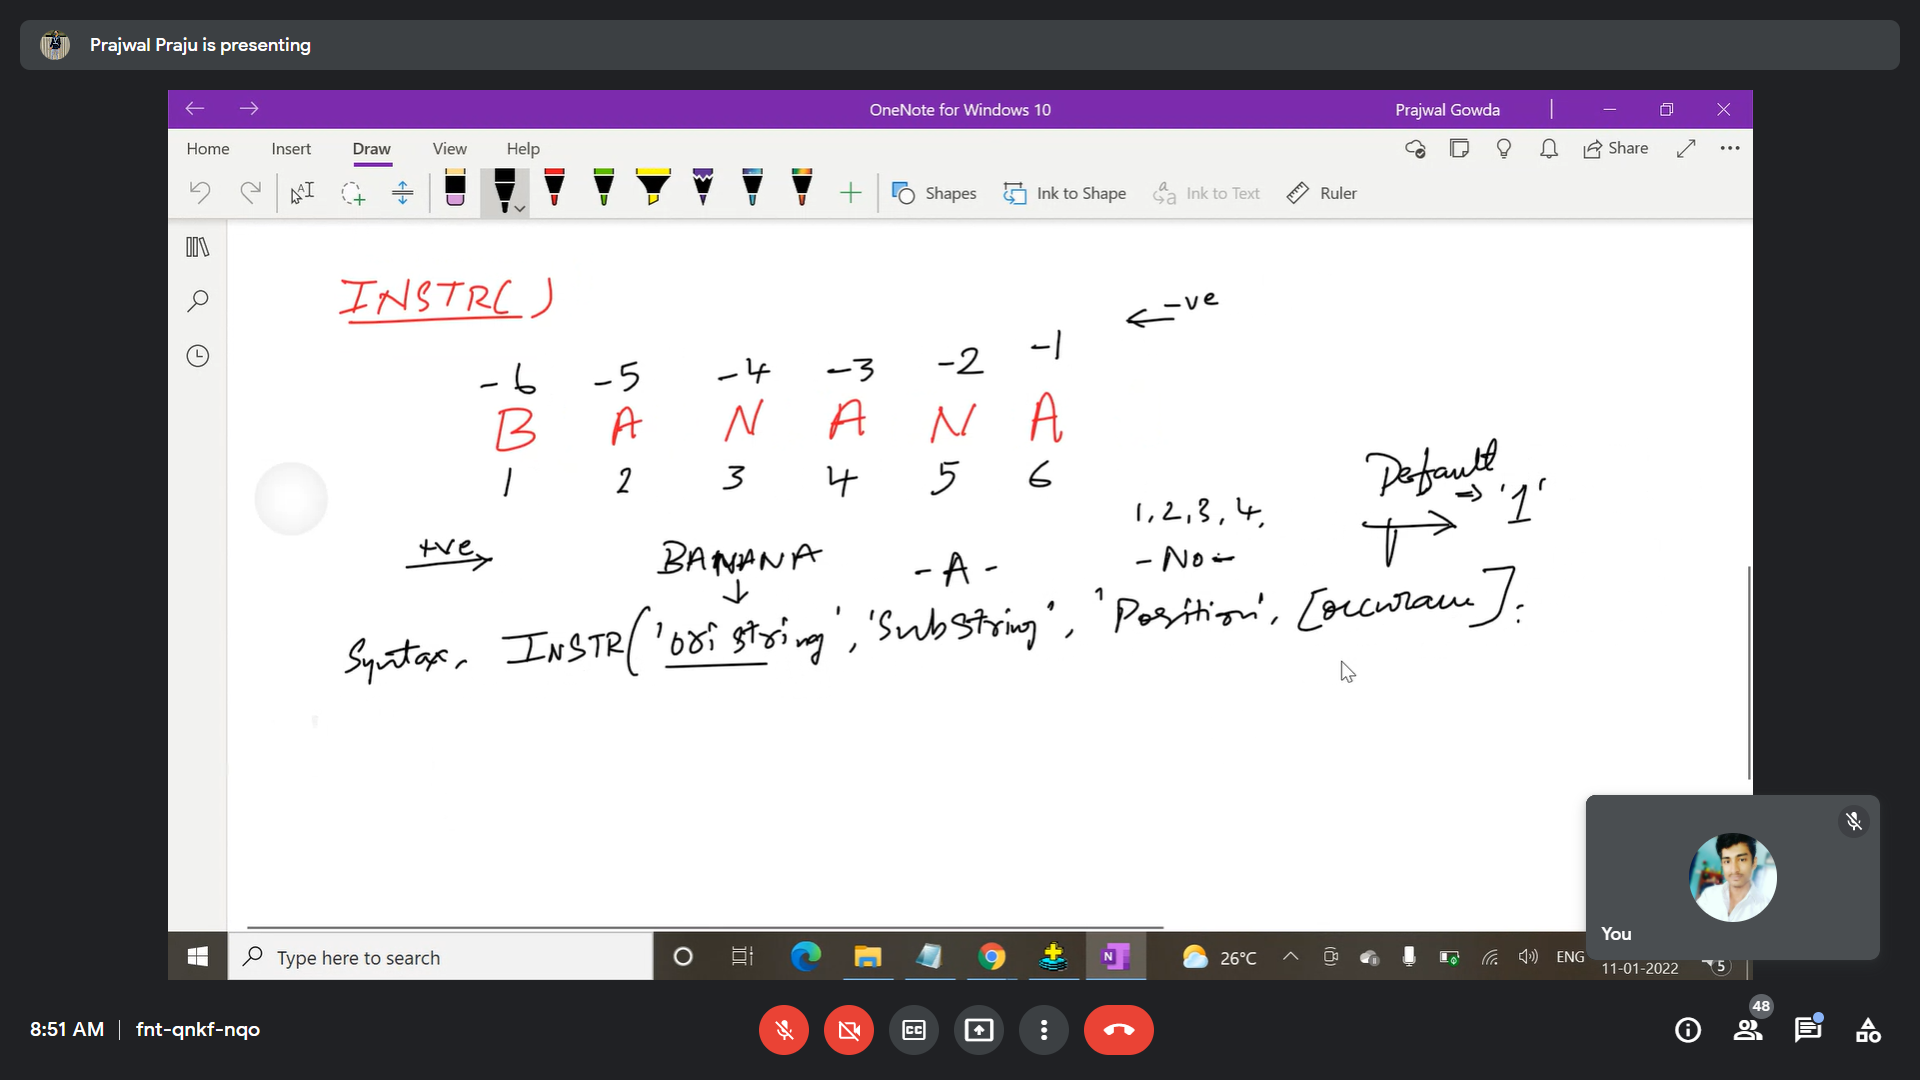 Prajwal Praju is presenting
OneNote for Windows 10
Prajwal Gowda
Home Insert Draw View Help
Share
Shapes Ink to Shape Ink to Text Ruler
INSTR( )
-ve
-6 -5 -4 -3 -2 -1
B A N A N A
1 2 3 4 5 6
Default
⇒ '1'
1, 2, 3, 4,
+ve
BANANA
- A -
- No -
Syntax, INSTR('ori string', 'Substring', 'Position', [occurance];
You
Type here to search
N
26°C
ENG
11-01-2022
5
8:51 AM | fnt-qnkf-nqo
CC
48